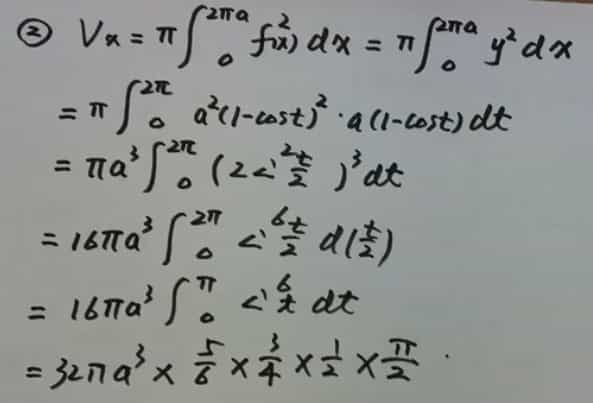 ② Vx = π∫₀^{2πa} f²(x) dx = π∫₀^{2πa} y² dx
= π∫₀^{2π} a²(1-cost)² · a(1-cost) dt
= πa³∫₀^{2π} (2<˙² t/2)³ dt
= 16πa³∫₀^{2π} <˙⁶ t/2 d(t/2)
= 16πa³∫₀^{π} <˙⁶ t dt
= 32πa³ × 5/6 × 3/4 × 1/2 × π/2 .